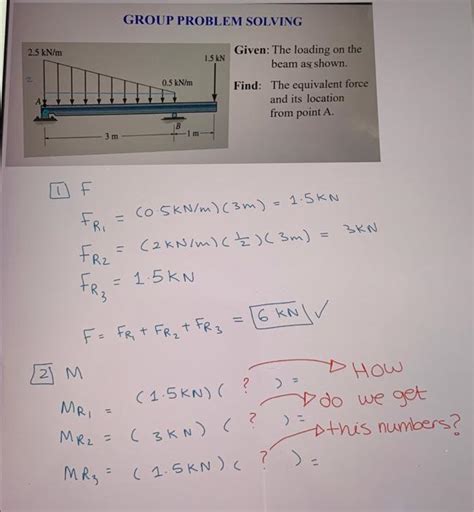 GROUP PROBLEM SOLVING
2.5 kN/m
1.5 kN
Given: The loading on the
beam as shown.
2
0.5 kN/m
Find: The equivalent force
and its location
from point A.
A
B
3 m
1 m
1 F
FR1 = (0.5KN/m)(3m) = 1.5KN
FR2 = (2KN/m)(1/2)(3m) = 3KN
FR3 = 1.5KN
F = FR1 + FR2 + FR3 = 6 KN ✓
2 M
MR1 = (1.5KN)( ? ) =
How
MR2 = ( 3KN) ( ? ) =
do we get
MR3 = (1.5KN)( ? ) =
this numbers?